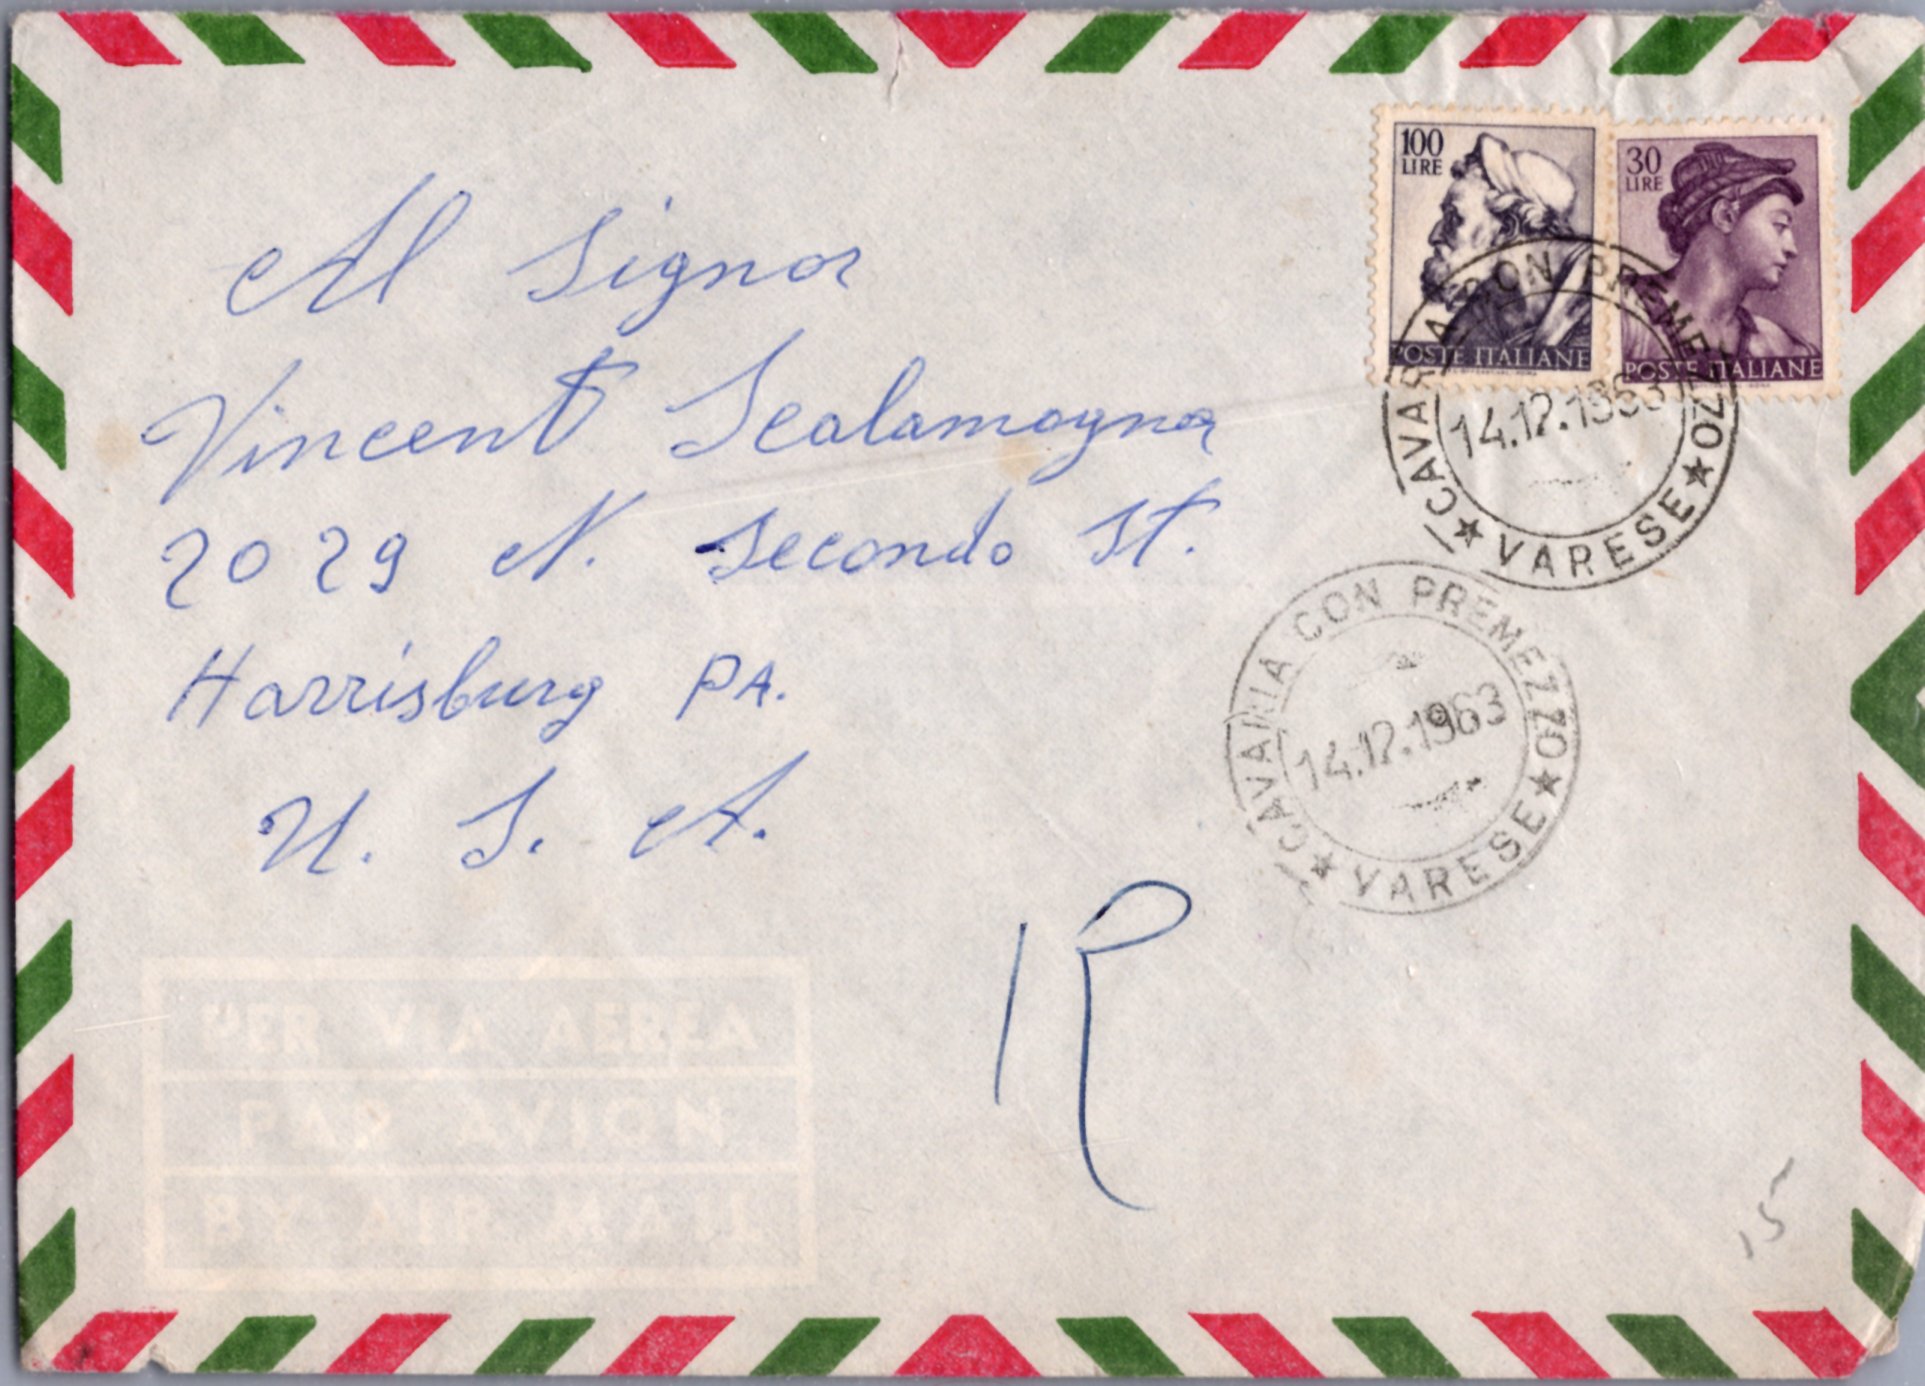 100
LIRE
POSTE ITALIANE
30
LIRE
POSTE ITALIANE
CAVARIA CON PREMEZZO
14.12.1963
★ VARESE ★
Al Signor
Vincent Scalamogna
2029 N. Secondo St.
Harrisburg PA.
U. S. A.
CAVARIA CON PREMEZZO
14.12.1963
★ VARESE ★
PER VIA AEREA
PAR AVION
BY AIR MAIL
15